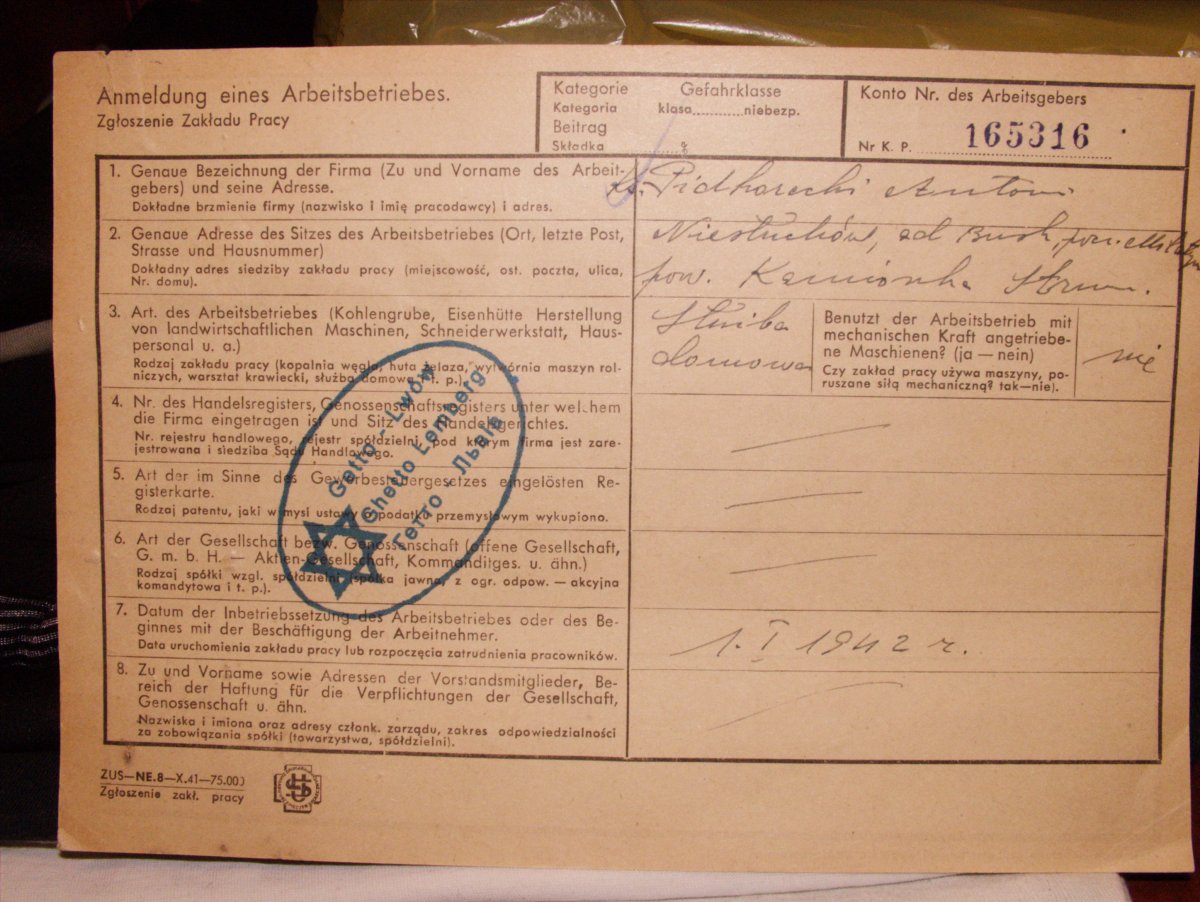 Anmeldung eines Arbeitsbetriebes.
Zgłoszenie Zakładu Pracy
Kategorie Gefahrklasse
Kategoria klasa..........niebezp.
Beitrag
Składka ..........%
Konto Nr. des Arbeitsgebers
Nr K. P. 165316
1. Genaue Bezeichnung der Firma (Zu und Vorname des Arbeit-
gebers) und seine Adresse.
Dokładne brzmienie firmy (nazwisko i imię pracodawcy) i adres.
Pidhorecki Antoni
2. Genaue Adresse des Sitzes des Arbeitsbetriebes (Ort, letzte Post,
Strasse und Hausnummer)
Dokładny adres siedziby zakładu pracy (miejscowość, ost. poczta, ulica,
Nr. domu).
Niestuchów, ad Busk,
pow. Kamionka Strum.
3. Art. des Arbeitsbetriebes (Kohlengrube, Eisenhütte Herstellung
von landwirtschaftlichen Maschinen, Schneiderwerkstatt, Haus-
personal u. a.)
Rodzaj zakładu pracy (kopalnia węgla, huta żelaza, wytwórnia maszyn rol-
niczych, warsztat krawiecki, służba domowa i t. p.).
Służba
domowa
Benutzt der Arbeitsbetrieb mit
mechanischen Kraft angetriebe-
ne Maschienen? (ja — nein)
Czy zakład pracy używa maszyny, po-
ruszane siłą mechaniczną? tak—nie).
nie
4. Nr. des Handelsregisters, Genossenschaftsregisters unter welchem
die Firma eingetragen ist und Sitz des Handelsgerichtes.
Nr. rejestru handlowego, rejestr spółdzielni, pod którym firma jest zare-
jestrowana i siedziba Sądu Handlowego.
5. Art der im Sinne des Gewerbesteuergesetzes eingelösten Re-
gisterkarte.
Rodzaj patentu, jaki w myśl ustawy o podatku przemysłowym wykupiono.
6. Art der Gesellschaft bezw. Genossenschaft (offene Gesellschaft,
G. m. b. H. — Aktien-Gesellschaft, Kommanditges. u. ähn.)
Rodzaj spółki wzgl. spółdzielni (spółka jawna, z ogr. odpow. — akcyjna
komandytowa i t. p.).
7. Datum der Inbetriebssetzung des Arbeitsbetriebes oder des Be-
ginnes mit der Beschäftigung der Arbeitnehmer.
Data uruchomienia zakładu pracy lub rozpoczęcia zatrudnienia pracowników.
1. I 1942 r.
8. Zu und Vorname sowie Adressen der Vorstandsmitglieder, Be-
reich der Haftung für die Verpflichtungen der Gesellschaft,
Genossenschaft u. ähn.
Nazwiska i imiona oraz adresy członk. zarządu, zakres odpowiedzialności
za zobowiązania spółki (towarzystwa, spółdzielni).
Getto - Lwów
Ghetto Lemberg
Гетто - Львів
ZUS—NE.8—X.41—75.000
Zgłoszenie zakł. pracy